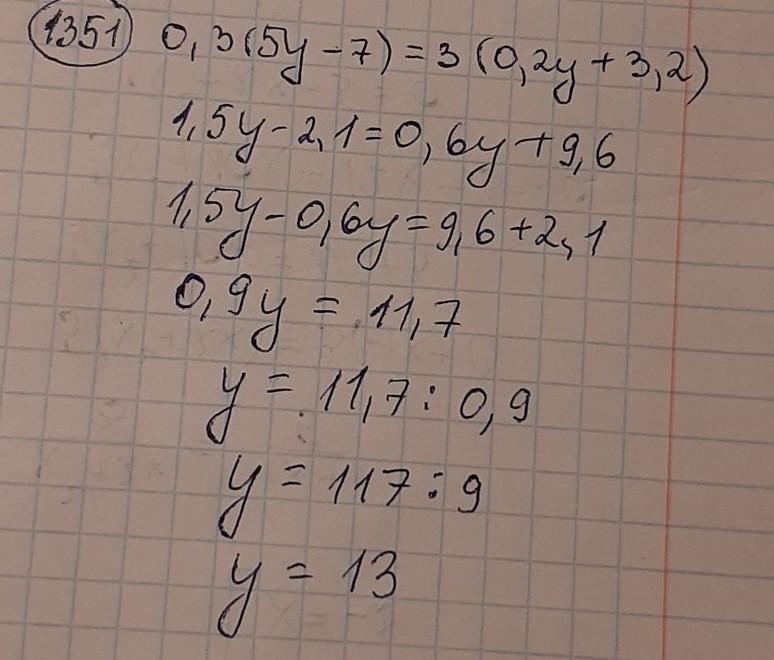 1351 0,3(5y-7)=3(0,2y+3,2)
1,5y-2,1=0,6y+9,6
1,5y-0,6y=9,6+2,1
0,9y = 11,7
y = 11,7:0,9
y = 117:9
y = 13